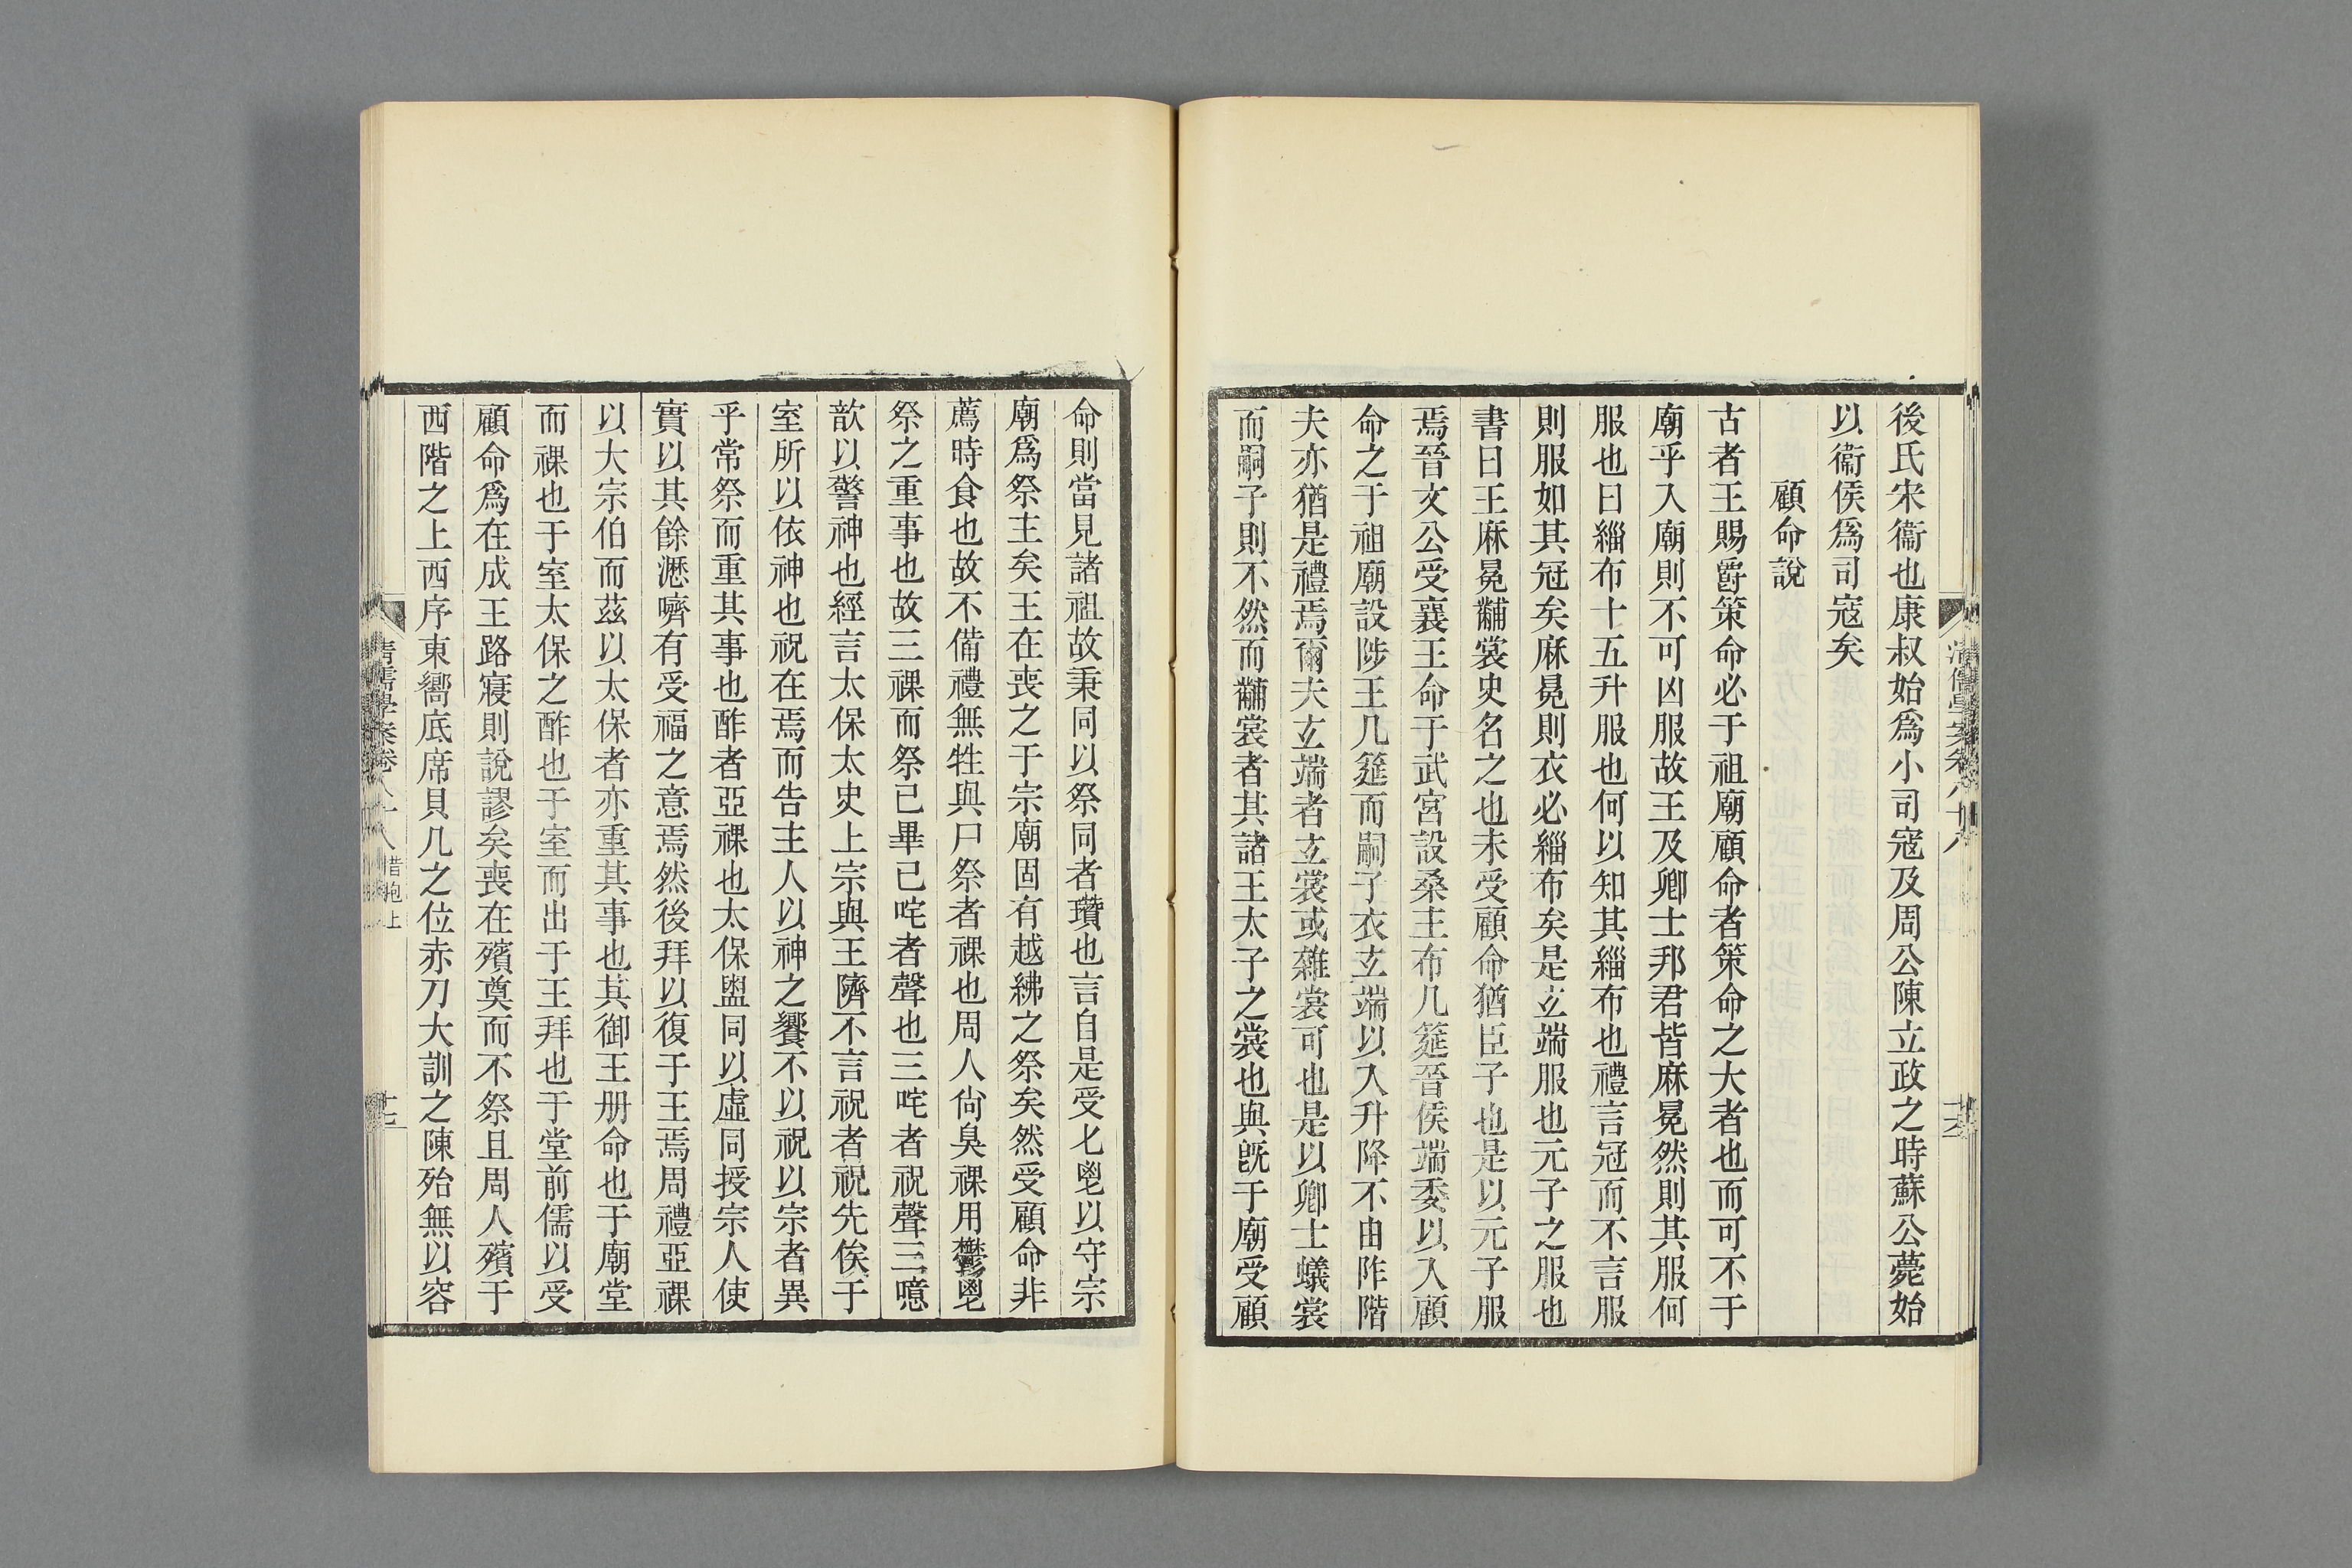 後氏宋衞也康叔始爲小司寇及周公陳立政之時蘇公薨始
以衞侯爲司寇矣
顧命說
古者王賜爵策命必于祖廟顧命者策命之大者也而可不于
廟乎入廟則不可凶服故王及卿士邦君皆麻冕然則其服何
服也曰緇布十五升服也何以知其緇布也禮言冠而不言服
則服如其冠矣麻冕則衣必緇布矣是玄端服也元子之服也
書曰王麻冕黼裳史名之也未受顧命猶臣子也是以元子服
焉晉文公受襄王命于武宮設桑主布几筵晉侯端委以入顧
命之于祖廟設陟王几筵而嗣子衣玄端以入升降不由阼階
夫亦猶是禮焉爾夫玄端者玄裳或雜裳可也是以卿士蟻裳
而嗣子則不然而黼裳者其諸王太子之裳也與旣于廟受顧
命則當見諸祖故秉同以祭同者瓚也言自是受匕鬯以守宗
廟爲祭主矣王在喪之于宗廟固有越紼之祭矣然受顧命非
薦時食也故不備禮無牲與尸祭者祼也周人尙臭祼用鬱鬯
祭之重事也故三祼而祭已畢已咤者聲也三咤者祝聲三噫
歆以警神也經言太保太史上宗與王隮不言祝者祝先俟于
室所以依神也祝在焉而告主人以神之饗不以祝以宗者異
乎常祭而重其事也酢者亞祼也太保盥同以虛同授宗人使
實以其餘瀝嚌有受福之意焉然後拜以復于王焉周禮亞祼
以大宗伯而茲以太保者亦重其事也其御王册命也于廟堂
而祼也于室太保之酢也于室而出于王拜也于堂前儒以受
顧命爲在成王路寢則說謬矣喪在殯奠而不祭且周人殯于
西階之上西序東嚮底席貝几之位赤刀大訓之陳殆無以容
清儒學案卷八十八 惜抱上